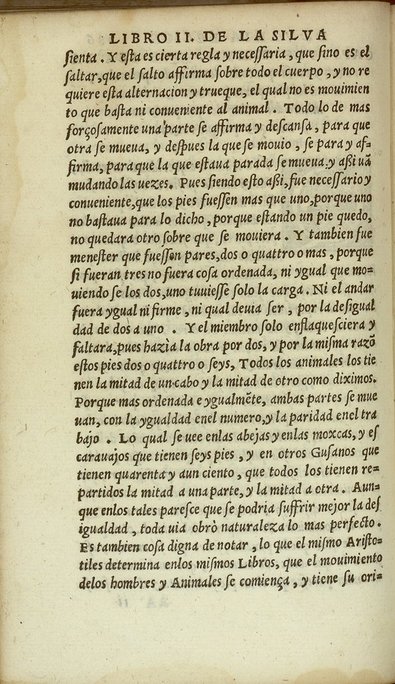 LIBRO II. DE LA SILVA
ſienta. Y esta es cierta regla y neceſſaria, que ſino es el
ſaltar, que el ſalto affirma ſobre todo el cuerpo, y no re
quiere esta alternacion y trueque, el qual no es mouimien
to que basta ni conueniente al animal. Todo lo de mas
forçoſamente una parte ſe affirma y deſcanſa, para que
otra ſe mueua, y deſpues la que ſe mouio, ſe para y af-
firma, para que la que estaua parada ſe mueua, y aßi uã
mudando las uezes. Pues ſiendo esto aßi, fue neceſſario y
conueniente, que los pies fueſſen mas que uno, porque uno
no bastaua para lo dicho, porque estando un pie quedo,
no quedara otro ſobre que ſe mouiera. Y tambien fue
menester que fueſſen pares, dos o quattro o mas, porque
ſi fueran tres no fuera coſa ordenada, ni ygual que mo-
uiendo ſe los dos, uno tuuieſſe ſolo la carga. Ni el andar
fuera ygual ni firme, ni qual deuia ſer, por la deſigual
dad de dos a uno. Y el miembro ſolo enflaqueſciera y
faltara, pues hazia la obra por dos, y por la miſma razõ
estos pies dos o quattro o ſeys, Todos los animales los tie
nen la mitad de un cabo y la mitad de otro como diximos.
Porque mas ordenada e ygualmẽte, ambas partes ſe mue
uan, con la ygualdad enel numero, y la paridad enel tra
bajo. Lo qual ſe uee enlas abejas y enlas moxcas, y eſ
carauajos que tienen ſeys pies, y en otros Guſanos que
tienen quarenta y aun ciento, que todos los tienen re-
partidos la mitad a una parte, y la mitad a otra. Aun-
que enlos tales pareſce que ſe podria ſuffrir mejor la deſ
igualdad, toda uia obrò naturaleza lo mas perfecto.
Es tambien coſa digna de notar, lo que el miſmo Aristo-
tiles determina enlos miſmos Libros, que el mouimiento
delos hombres y Animales ſe comiença, y tiene ſu ori-